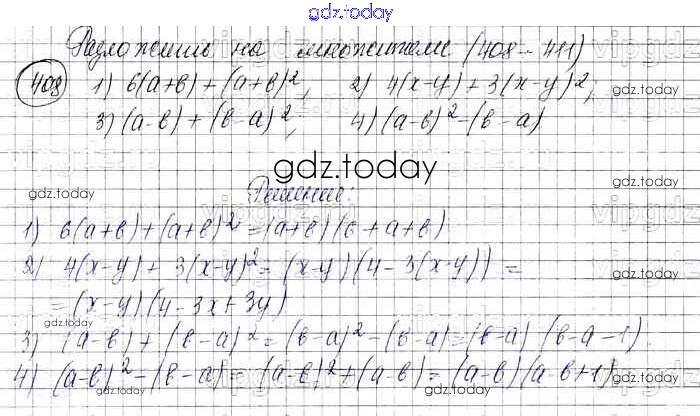 gdz.today
Разложить на множители (408-411)
408 1) 6(a+b)+(a+b)², 2) 4(x-y)+3(x-y)²;
3) (a-b)+(b-a)²; 4) (a-b)²-(b-a)
gdz.today
gdz.today
Решение:
1) 6(a+b)+(a+b)²=(a+b)(6+a+b)
2) 4(x-y)+3(x-y)²=(x-y)(4-3(x-y))=
=(x-y)(4-3x+3y)
3) (a-b)+(b-a)²=(b-a)²-(b-a)=(b-a)(b-a-1).
4) (a-b)²-(b-a)=(a-b)²+(a-b)=(a-b)(a-b+1)